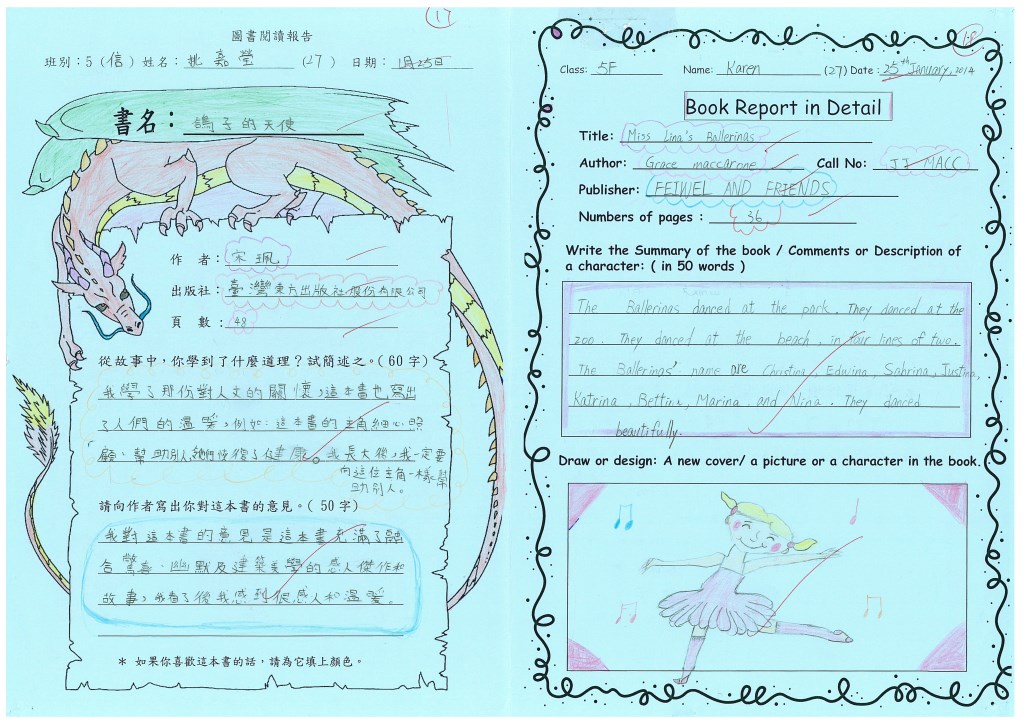 17
圖書閱讀報告
班別：5 (信) 姓名：姚嘉瑩 (27) 日期：1月25日
書名：鴿子的天使
作 者：宋珮
出版社：臺灣東方出版社股份有限公司
頁 數：48
從故事中，你學到了什麼道理？試簡述之。( 60 字)
我學了那份對人文的關懷，這本書也寫出
了人們的溫暖，例如：這本書的主角細心照
顧、幫助別人，恢復了健康。我長大後，我一定要
向這位主角一樣幫
助別人。
請向作者寫出你對這本書的意見。( 50 字)
我對這本書的意見是這本書充滿了融
合驚喜、幽默及建築美學的感人傑作和
故事，我看了後我感到很感人和溫暖。
* 如果你喜歡這本書的話，請為它填上顏色。
18
Class: 5F Name: Karen (27) Date : 25th January, 2014
Book Report in Detail
Title: Miss Lina's Ballerinas
Author: Grace maccarone Call No: JJ MACC
Publisher: FEIWEL AND FRIENDS
Numbers of pages : 36
Write the Summary of the book / Comments or Description of
a character: ( in 50 words )
The Ballerinas danced at the park. They danced at the
zoo. They danced at the beach, in four lines of two.
The Ballerinas' name are Christina, Edwina, Sabrina, Justina,
Katrina, Bettina, Marina, and Nina. They danced
beautifully.
Draw or design: A new cover/ a picture or a character in the book.